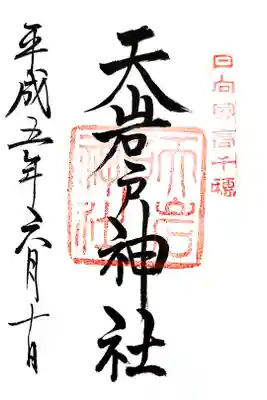 日向國高千穂
天岩戸神社
天岩戸神社
平成五年六月十日